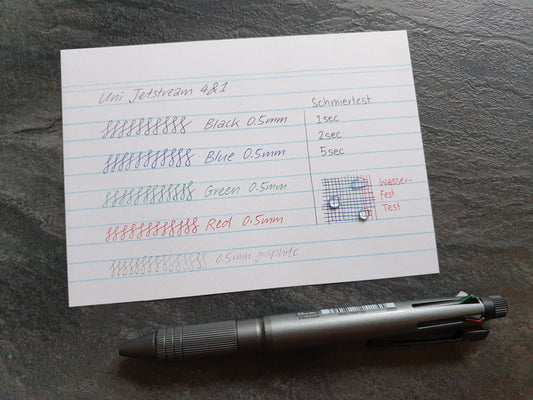 Uni Jetstream 4&1
Black 0.5mm
Blue 0.5mm
Green 0.5mm
Red 0.5mm
0.5mm graphite
Schmiertest
1sec
2sec
5sec
Wasser-
fest
Test